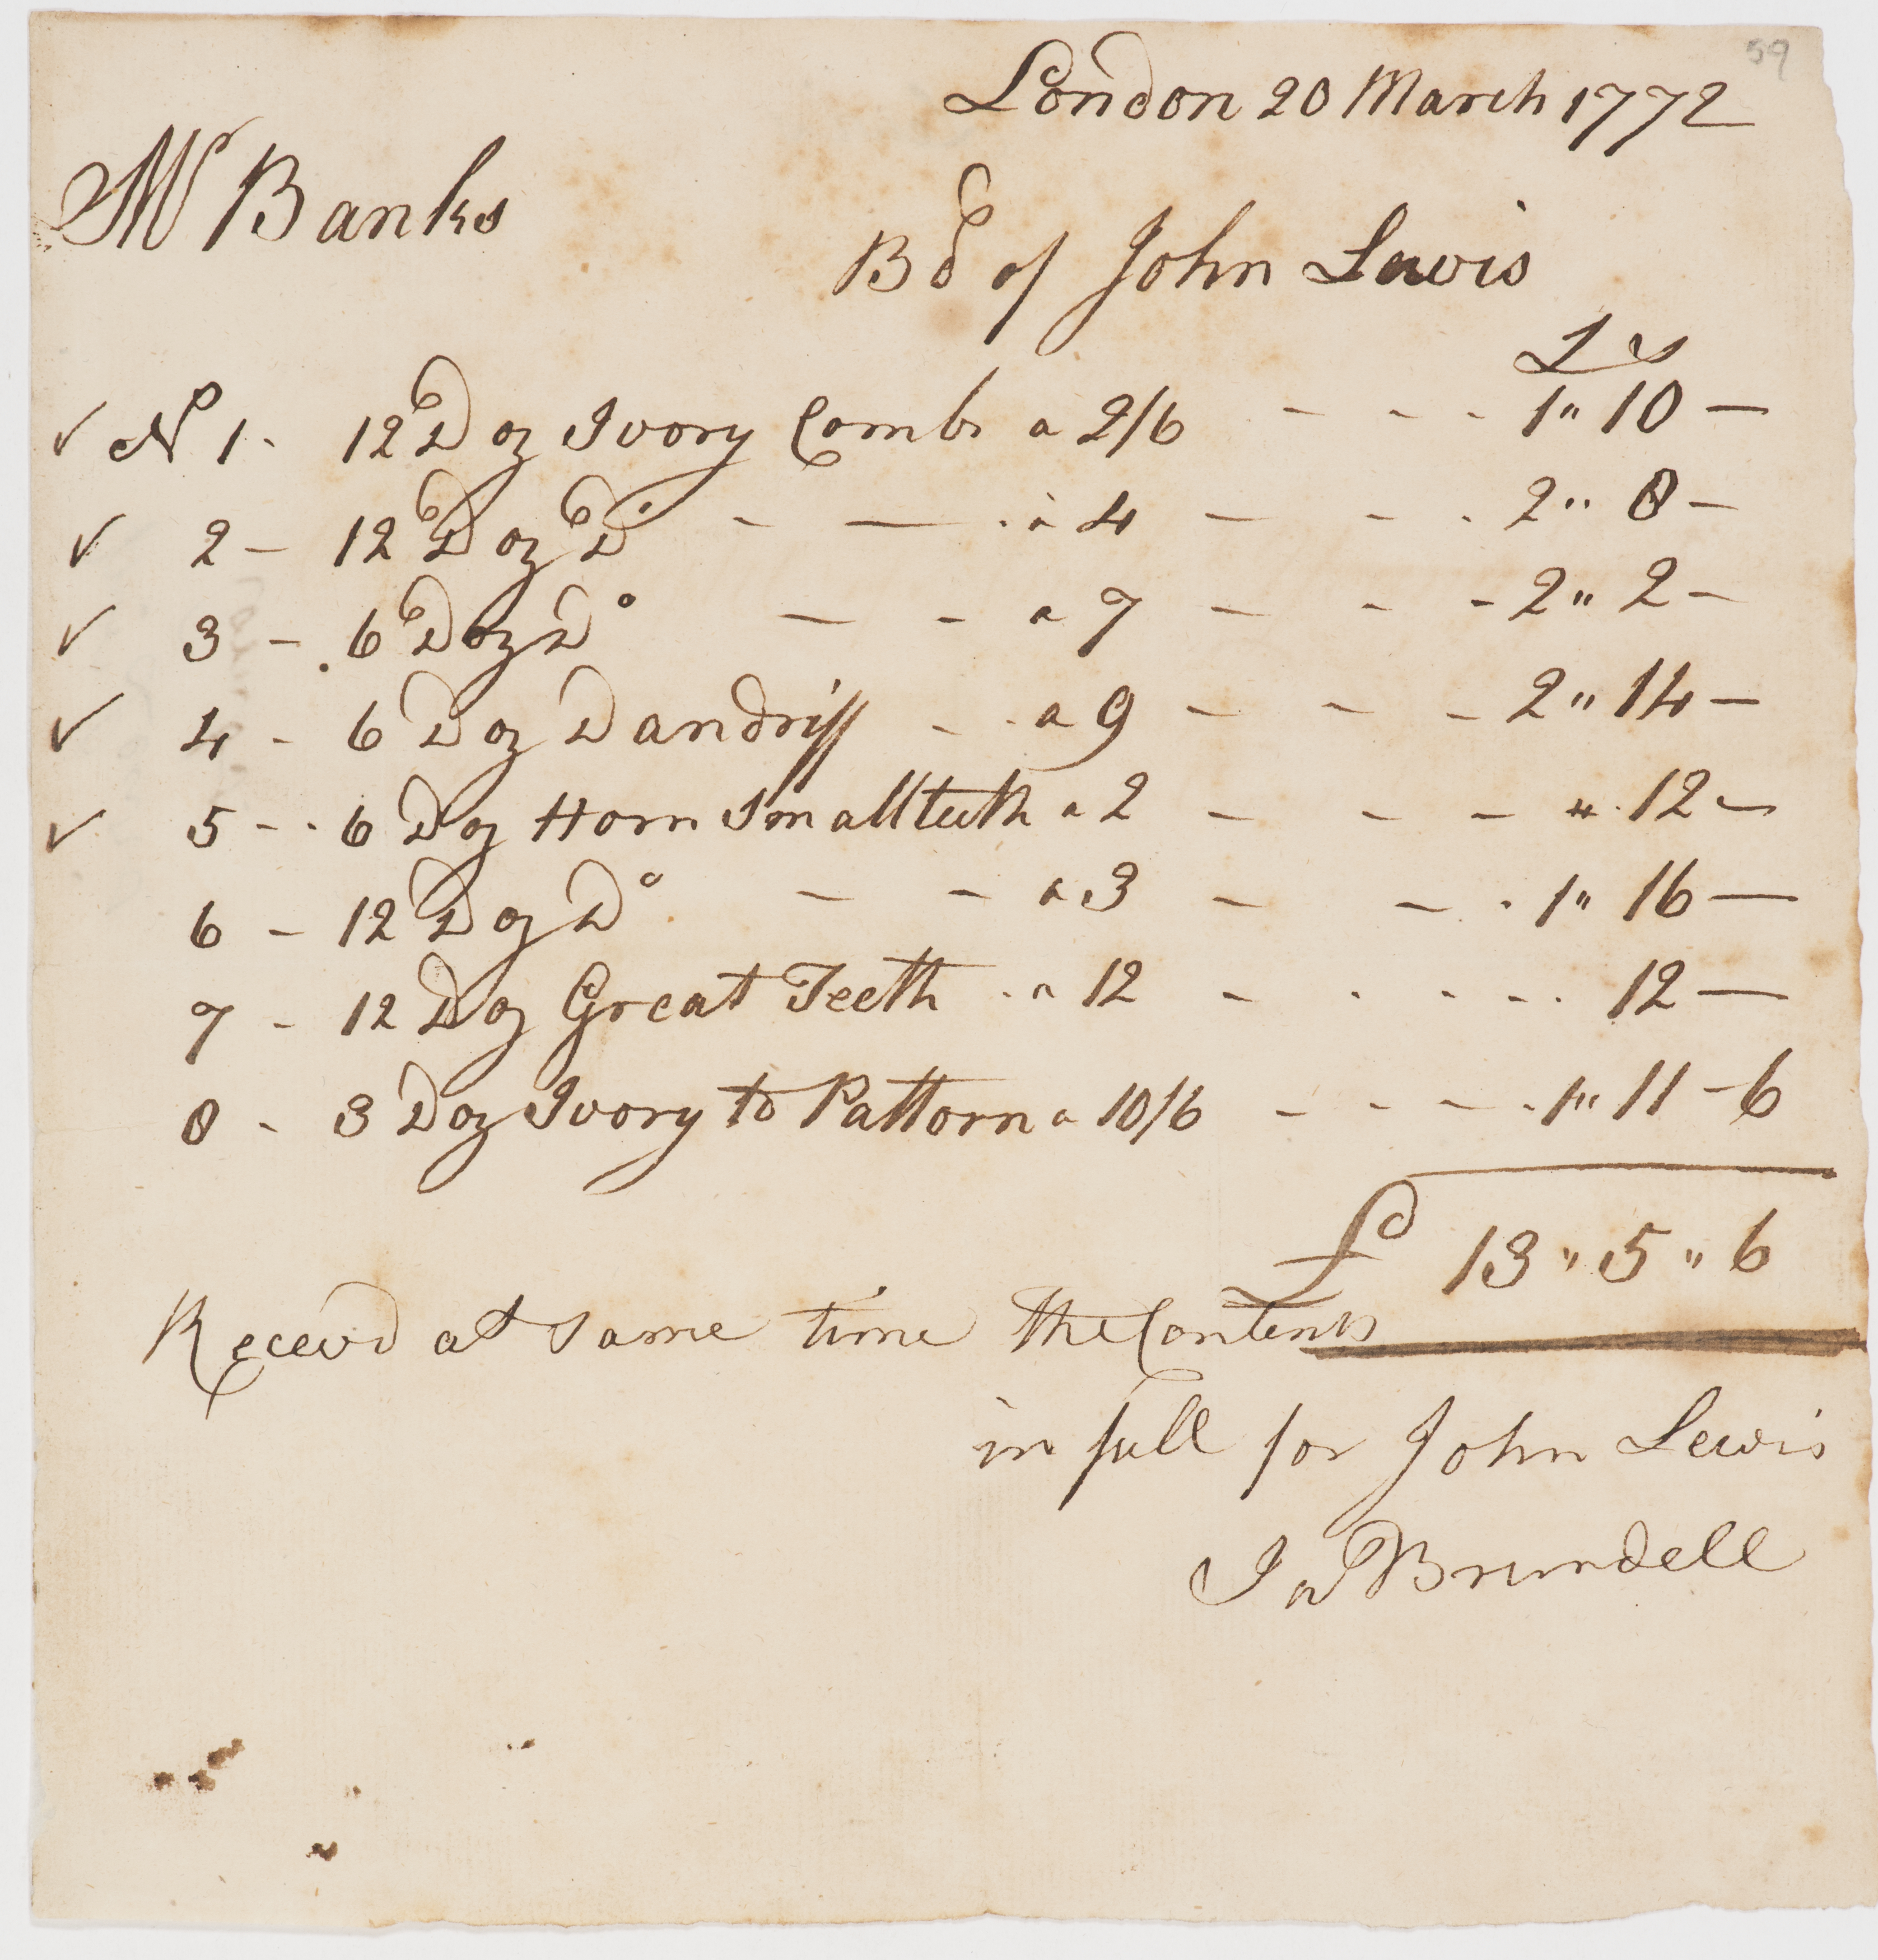 59
London 20 March 1772
Mr Banks
Bd of John Lewis
£ s
✓ No 1 - 12 Doz Ivory Combs a 2/6 - - - 1" 10 —
✓ 2 - 12 Doz Do - — a 4 - - - 2" 8 -
✓ 3 - 6 Doz Do — - a 7 - - - 2" 2 -
✓ 4 - 6 Doz Dandriff - - a 9 - - - 2" 14 -
✓ 5 - 6 Doz Horn Small teeth a 2 - - - " 12 -
6 - 12 Doz Do - - a 3 - - - 1" 16 —
7 - 12 Doz Great Teeth - a 12 - - - - 12 —
8 - 3 Doz Ivory to Pattorn a 10/6 - - - - 1" 11 - 6
£ 13 " 5 " 6
Receovd at same time the Contents
in full for John Lewis
Jno Brundell